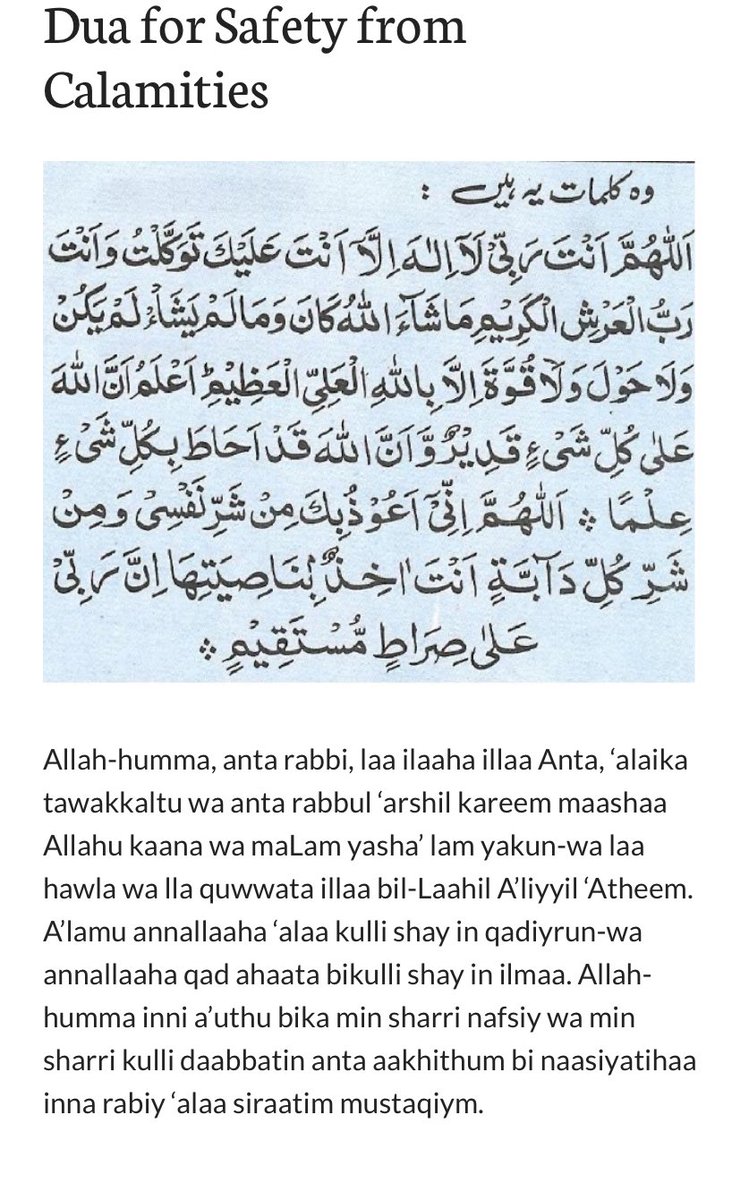 Dua for Safety from
Calamities
وہ کلمات یہ ہیں :
اَللّٰهُمَّ اَنْتَ رَبِّيْ لَآ اِلٰهَ اِلَّآ اَنْتَ عَلَيْكَ تَوَكَّلْتُ وَاَنْتَ
رَبُّ الْعَرْشِ الْكَرِيْمِ مَا شَآءَ اللّٰهُ كَانَ وَمَا لَمْ يَشَأْ لَمْ يَكُنْ
وَلَا حَوْلَ وَلَا قُوَّةَ اِلَّا بِاللّٰهِ الْعَلِيِّ الْعَظِيْمِ ط اَعْلَمُ اَنَّ اللّٰهَ
عَلٰى كُلِّ شَيْءٍ قَدِيْرٌ وَّاَنَّ اللّٰهَ قَدْ اَحَاطَ بِكُلِّ شَيْءٍ
عِلْمًا ۞ اَللّٰهُمَّ اِنِّيْٓ اَعُوْذُ بِكَ مِنْ شَرِّ نَفْسِيْ وَمِنْ
شَرِّ كُلِّ دَآبَّةٍ اَنْتَ اٰخِذٌۢ بِنَاصِيَتِهَا اِنَّ رَبِّيْ
عَلٰى صِرَاطٍ مُّسْتَقِيْمٍ ۞
Allah-humma, anta rabbi, laa ilaaha illaa Anta, ‘alaika
tawakkaltu wa anta rabbul ‘arshil kareem maashaa
Allahu kaana wa maLam yasha’ lam yakun-wa laa
hawla wa lla quwwata illaa bil-Laahil A’liyyil ‘Atheem.
A’lamu annallaaha ‘alaa kulli shay in qadiyrun-wa
annallaaha qad ahaata bikulli shay in ilmaa. Allah-
humma inni a’uthu bika min sharri nafsiy wa min
sharri kulli daabbatin anta aakhithum bi naasiyatihaa
inna rabiy ‘alaa siraatim mustaqiym.